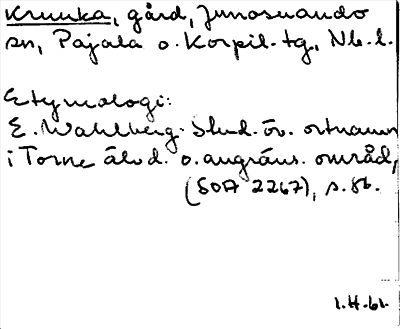 Kruuka, gård, Junosuando
sn, Pajala o. Korpil. tg, Nb. l.
Etymologi:
E. Wahlberg. Stud. öv. ortnamn
i Torne älvd. o. angräns. områd,
(SOA 2267), s. 86.
1.H.61.